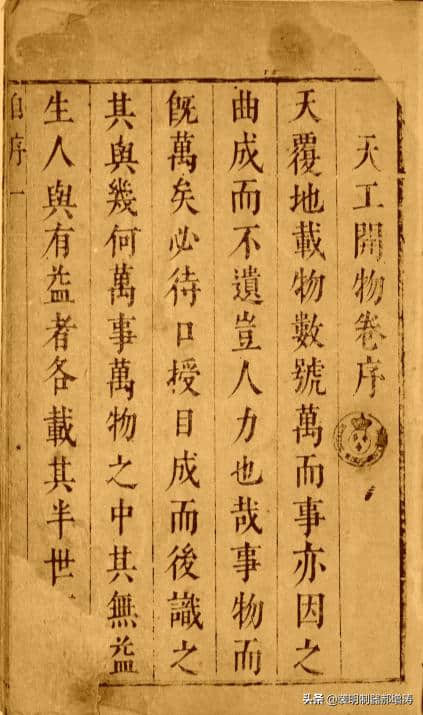 天工開物卷序
天覆地載物數號萬而事亦因之
曲成而不遺豈人力也哉事物而
旣萬矣必待口授目成而後識之
其與幾何萬事萬物之中其無益
生人與有益者各載其半世
自序一
头条